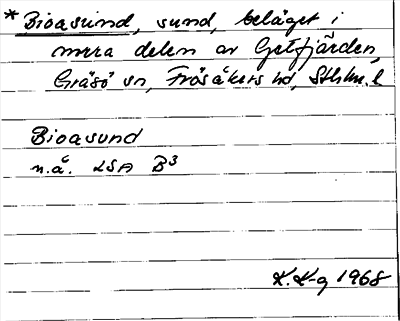 * Bioasund, sund, beläget i
norra delen av Getfjärden,
Gräsö sn, Frösåkers hd, Sthlm. l
Bioasund
n.å. LSA B3
K.K-g 1968